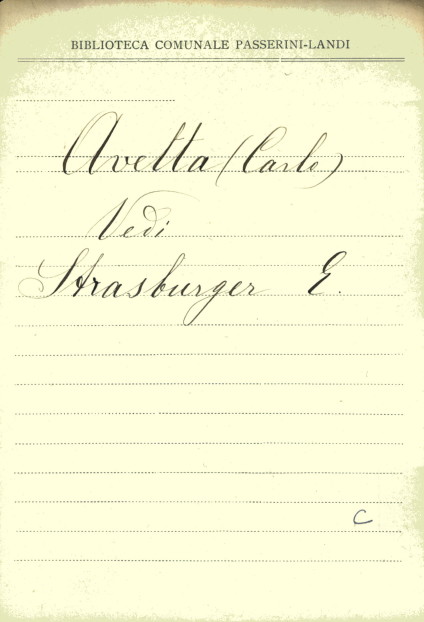 BIBLIOTECA COMUNALE PASSERINI-LANDI
Avetta (Carlo)
Vedi
Strasburger E.
C